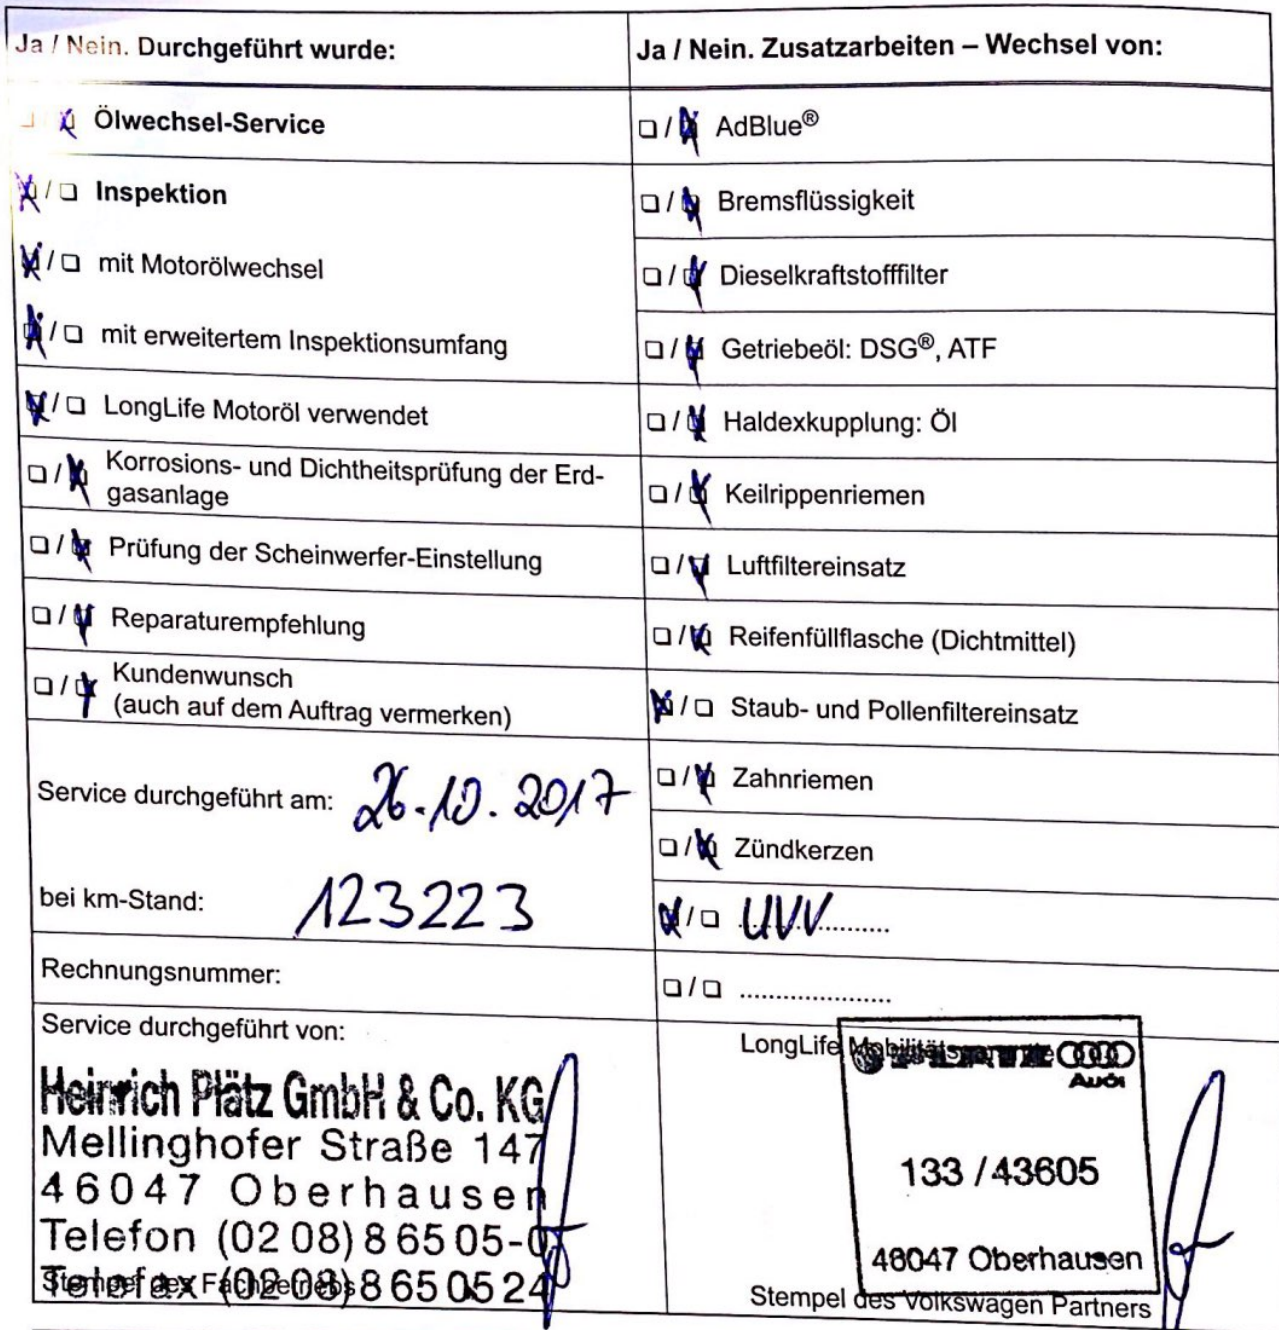 Ja / Nein. Durchgeführt wurde:
Ölwechsel-Service
Inspektion
mit Motorölwechsel
mit erweitertem Inspektionsumfang
LongLife Motoröl verwendet
Korrosions- und Dichtheitsprüfung der Erd-
gasanlage
Prüfung der Scheinwerfer-Einstellung
Reparaturempfehlung
Kundenwunsch
(auch auf dem Auftrag vermerken)
Service durchgeführt am: 26.10.2017
bei km-Stand: 123223
Rechnungsnummer:
Service durchgeführt von:
Heinrich Plätz GmbH & Co. KG
Mellinghofer Straße 147
46047 Oberhausen
Telefon (02 08) 8 65 05-0
Telefax (02 08) 8 65 05 24
Stempel des Fachbetriebs
Ja / Nein. Zusatzarbeiten – Wechsel von:
AdBlue®
Bremsflüssigkeit
Dieselkraftstofffilter
Getriebeöl: DSG®, ATF
Haldexkupplung: Öl
Keilrippenriemen
Luftfiltereinsatz
Reifenfüllflasche (Dichtmittel)
Staub- und Pollenfiltereinsatz
Zahnriemen
Zündkerzen
UVV
LongLife Mobilitätsgarantie
Audi
133 / 43605
46047 Oberhausen
Stempel des Volkswagen Partners